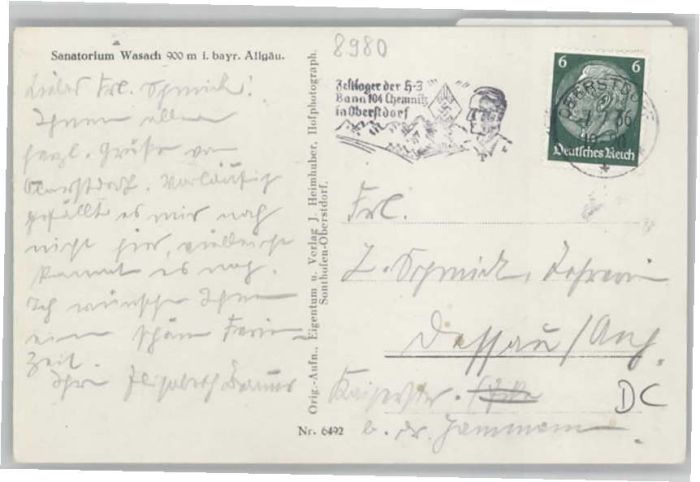 8980
Sanatorium Wasach 900 m i. bayr. Allgäu.
Zeltlager der H-J
Bann 104 Chemnitz
in Oberstdorf
OBERSTDORF
6 6
Deutsches Reich
Liebes Frl. Schmidt!
Ihnen allen
herzl. Grüße von
Oberstdorf. Vorläufig
gefällt es mir noch
nicht hier, vielleicht
kommt es noch.
Ich wünsche Ihnen
eine schöne Ferien-
zeit.
Ihre Elisabeth
Orig.-Aufn., Eigentum u. Verlag J. Heimhuber, Hofphotograph.
Sonthofen-Oberstdorf.
Nr. 6492
Frl.
Schmidt, Lehrerin
Dessau/Anh.
DC
b. Dr.